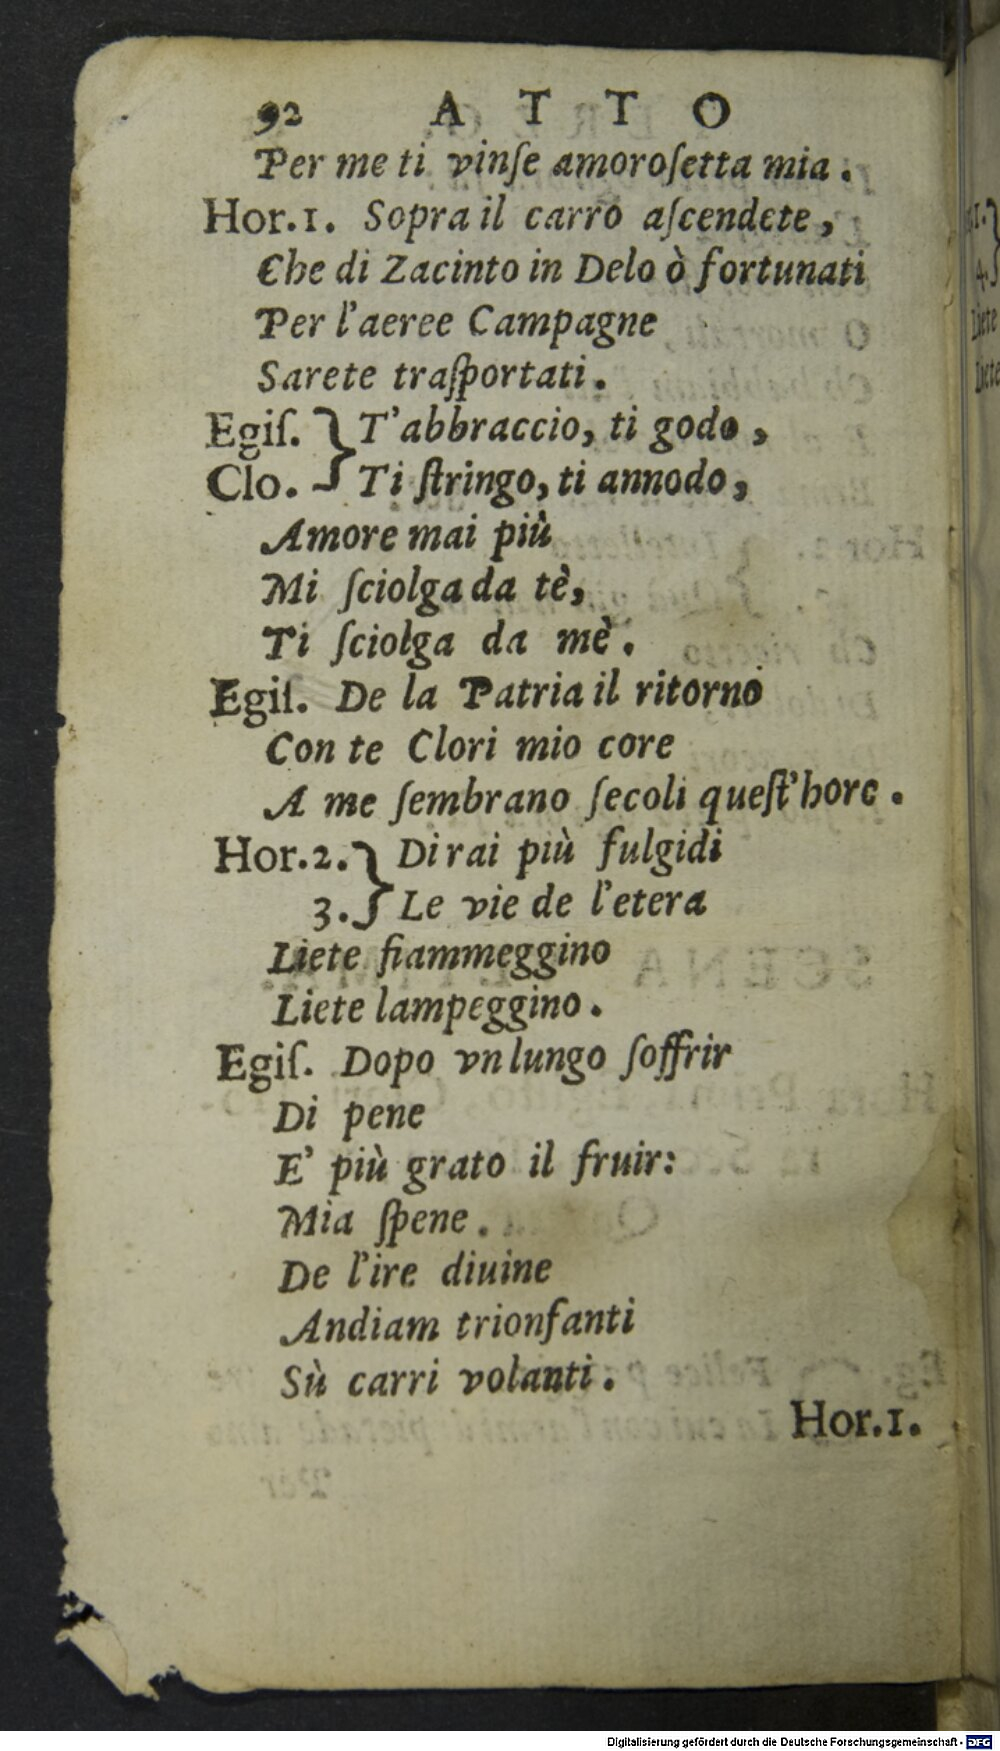 92 ATTO
Per me ti vinſe amoroſetta mia.
Hor.1. Sopra il carro aſcendete,
Che di Zacinto in Delo ò fortunati
Per l'aeree Campagne
Sarete traſportati.
Egiſ. } T'abbraccio, ti godo,
Clo. } Ti ſtringo, ti annodo,
Amore mai più
Mi ſciolga da tè,
Ti ſciolga da mè.
Egiſ. De la Patria il ritorno
Con te Clori mio core
A me ſembrano ſecoli queſt'hore.
Hor.2. } Di rai più fulgidi
3. } Le vie de l'etera
Liete fiammeggino
Liete lampeggino.
Egiſ. Dopo vn lungo ſoffrir
Di pene
E' più grato il fruir:
Mia ſpene.
De l'ire diuine
Andiam trionfanti
Sù carri volanti.
Hor.1.
Digitalisierung gefördert durch die Deutsche Forschungsgemeinschaft - DFG